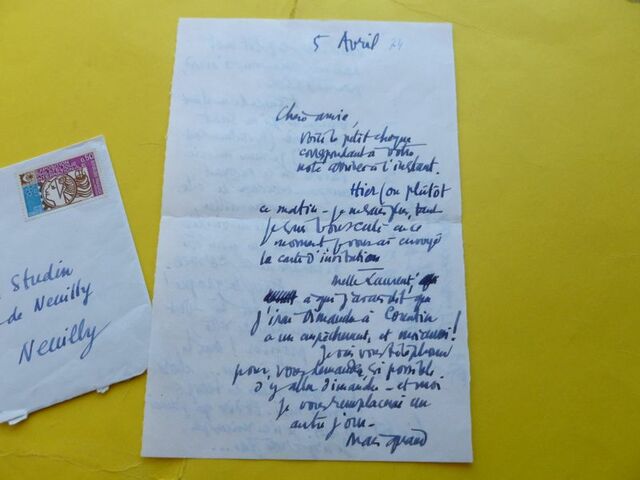 5 Avril 74
Chère amie,
voici le petit chèque
correspondant à votre
note arrivée à l'instant.
Hier (ou plutôt
ce matin - je ne sais plus, tant
je suis bousculé en ce
moment je vous ai envoyé
la carte d'invitation
Melle Laurent,
à qui j'avais dit que
j'irai Dimanche à
a un empêchement, et moi aussi!
Je vais vous téléphoner
pour vous demander si possible
d'y aller dimanche - et moi
je vous remplacerai un
autre jour -
Mais quand
0,50
Studin
de Neuilly
Neuilly